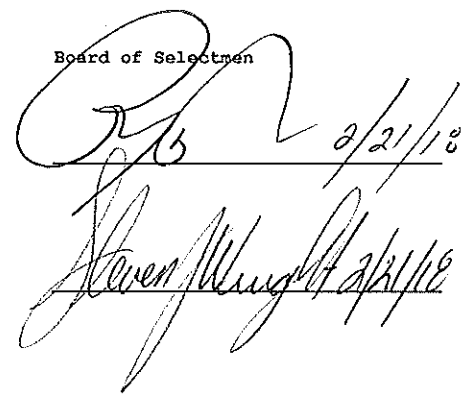 Board of Selectmen
2/21/18
Steven J Wright 2/21/18